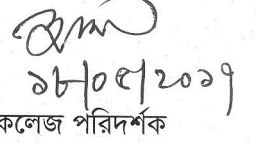 ১৮/০৫/২০১৭
কলেজ পরিদর্শক